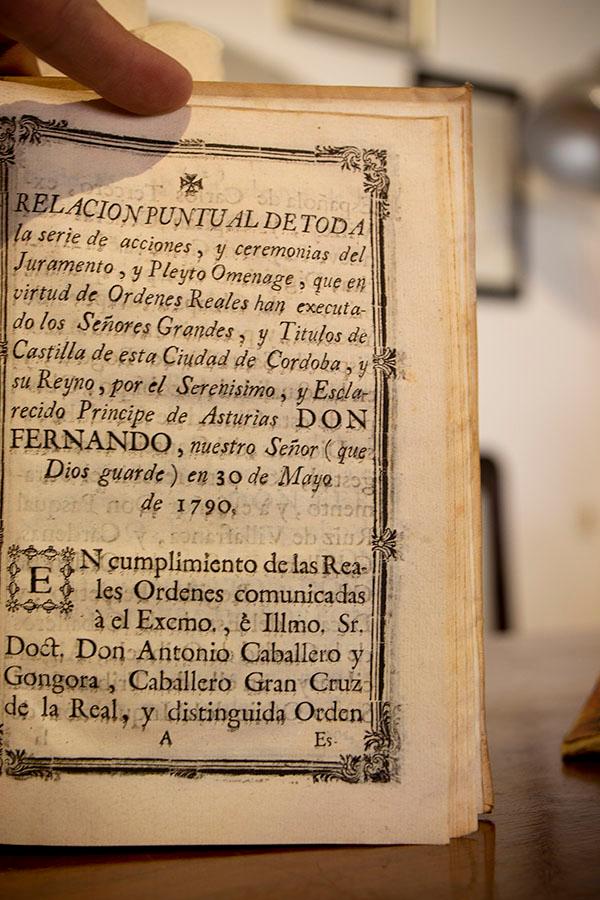 RELACION PUNTUAL DE TODA
la serie de acciones, y ceremonias del
Juramento, y Pleyto Omenage, que en
virtud de Ordenes Reales han executa-
do los Señores Grandes, y Titulos de
Castilla de esta Ciudad de Cordoba, y
su Reyno, por el Serenisimo, y Escla-
recido Principe de Asturias DON
FERNANDO, nuestro Señor (que
Dios guarde) en 30 de Mayo
de 1790,
EN cumplimiento de las Rea-
les Ordenes comunicadas
à el Excmo., è Illmo. Sr.
Doct. Don Antonio Caballero y
Gongora, Caballero Gran Cruz
de la Real, y distinguida Orden
A Es-